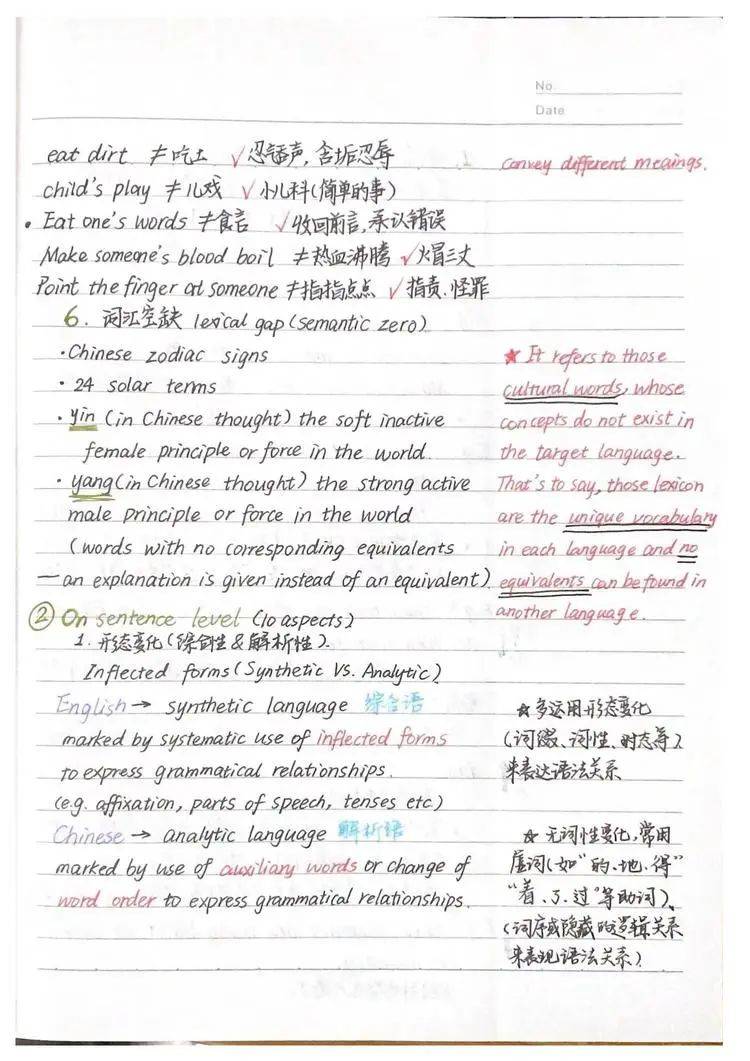 No.
Date
eat dirt ≠吃土 √忍气吞声, 含垢忍辱
convey different meanings.
child's play ≠儿戏 √小儿科(简单的事)
· Eat one's words ≠食言 √收回前言,承认错误
Make someone's blood boil ≠热血沸腾 √火冒三丈
Point the finger at someone ≠指指点点 √指责.怪罪
6. 词汇空缺 lexical gap (semantic zero)
·Chinese zodiac signs
· 24 solar terms
· yin (in Chinese thought) the soft inactive
female principle or force in the world.
· yang (in Chinese thought) the strong active
male principle or force in the world
(words with no corresponding equivalents
—an explanation is given instead of an equivalent)
★ It refers to those
cultural words, whose
concepts do not exist in
the target language.
That's to say, those lexicon
are the unique vocabulary
in each language and no
equivalents can be found in
another language.
② On sentence level (10 aspects)
1. 形态变化(综合性&解析性).
Inflected forms (Synthetic Vs. Analytic)
English → synthetic language 综合语
marked by systematic use of inflected forms
to express grammatical relationships.
(e.g. affixation, parts of speech, tenses etc)
★多运用形态变化
(词缀、词性、时态等)
来表达语法关系
Chinese → analytic language 解析语
marked by use of auxiliary words or change of
word order to express grammatical relationships.
★ 无词性变化,常用
虚词(如"的、地、得"
"着、了、过"等助词)、
(词序或隐藏的逻辑关系
来表现语法关系)